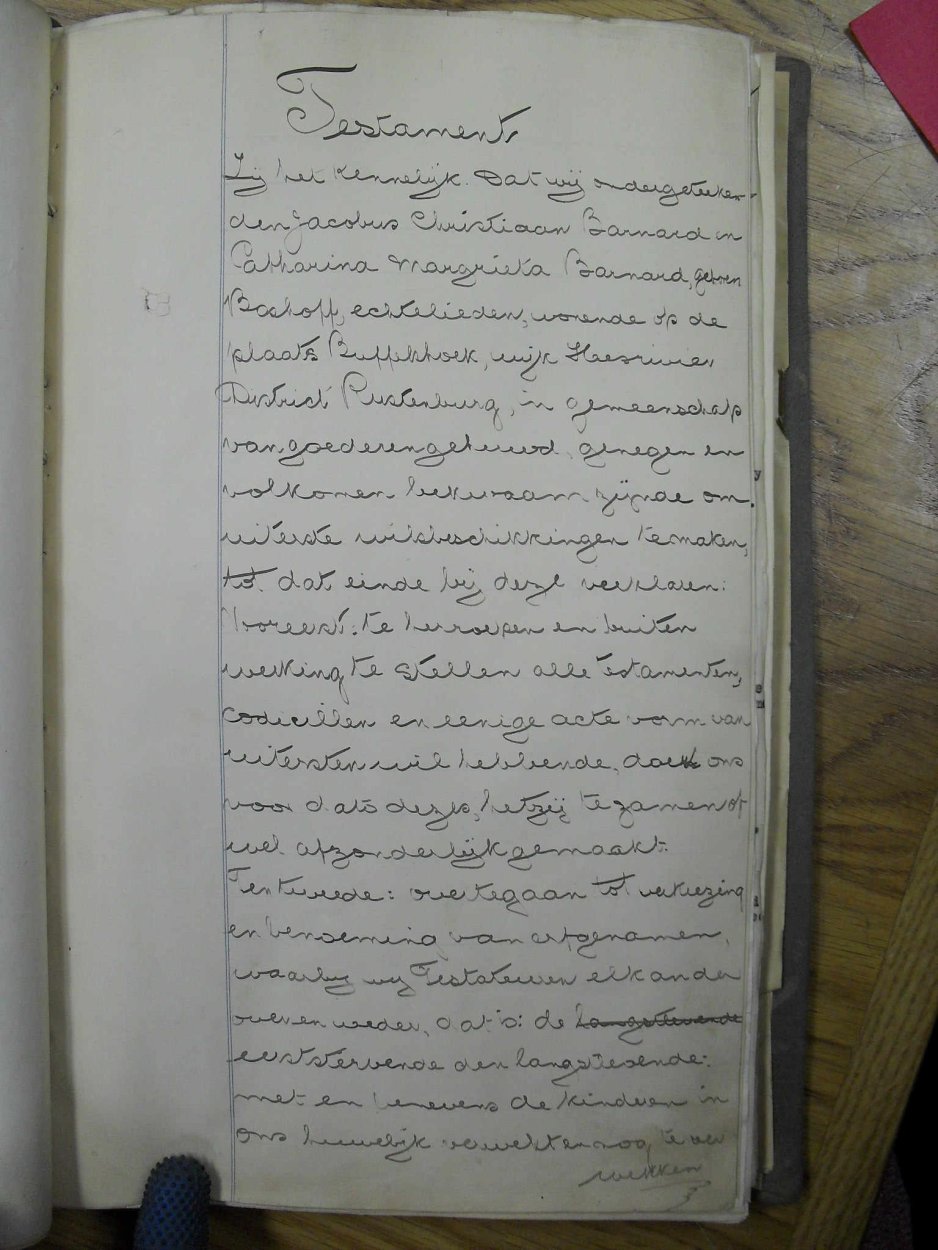 Testament
Zij het Kennelijk. Dat wij ondergeteeken-
den Jacobus Christiaan Barnard en
Catharina Margrieta Barnard, geboren
Boshoff, echtelieden, wonende op de
plaats Buffelshoek, wijk Hexrivier
District Rustenburg, in gemeenschap
van goederen gehuwd, genegen en
volkomen bekwaam zijnde om
uiterste wilsbeschikkingen te maken,
tot dat einde bij deze verklaren:
Vooreerst: te herroepen en buiten
werking te stellen alle testamenten,
codicillen en eenige acte vorm van
uitersten wil hebbende, door ons
voor dato dezes, hetzij te zamen of
wel afzonderlijk gemaakt:
Ten tweede: over te gaan tot verkiezing
en benoeming van erfgenamen,
waarbij wij Testateuren elkander
over en weder, dat is: de langstlevende
eerststervende den langstlevende:
met en benevens de kinderen in
ons huwelijk verwekt en nog te ver
wekken